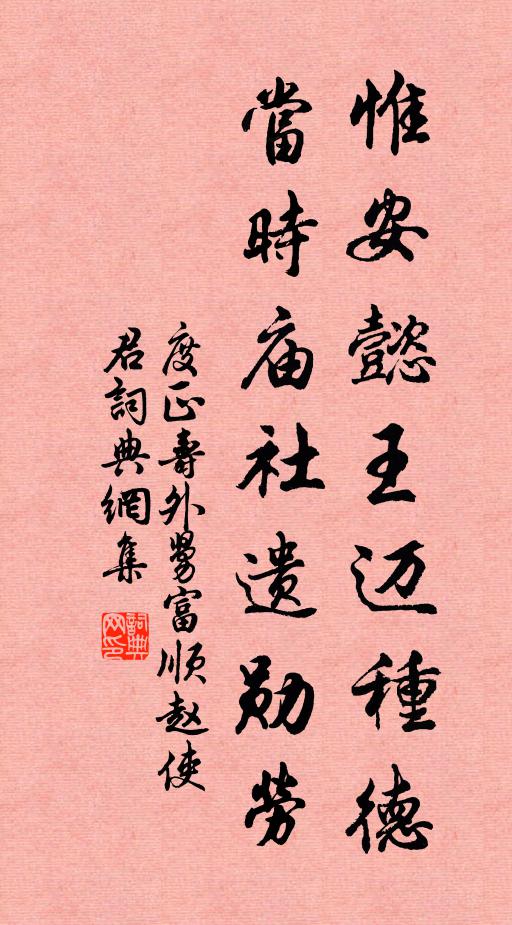 惟安懿王迈種德
當時庙社遗勋勞
度正壽外舅富順赵使
君詞典網集
詞典網印